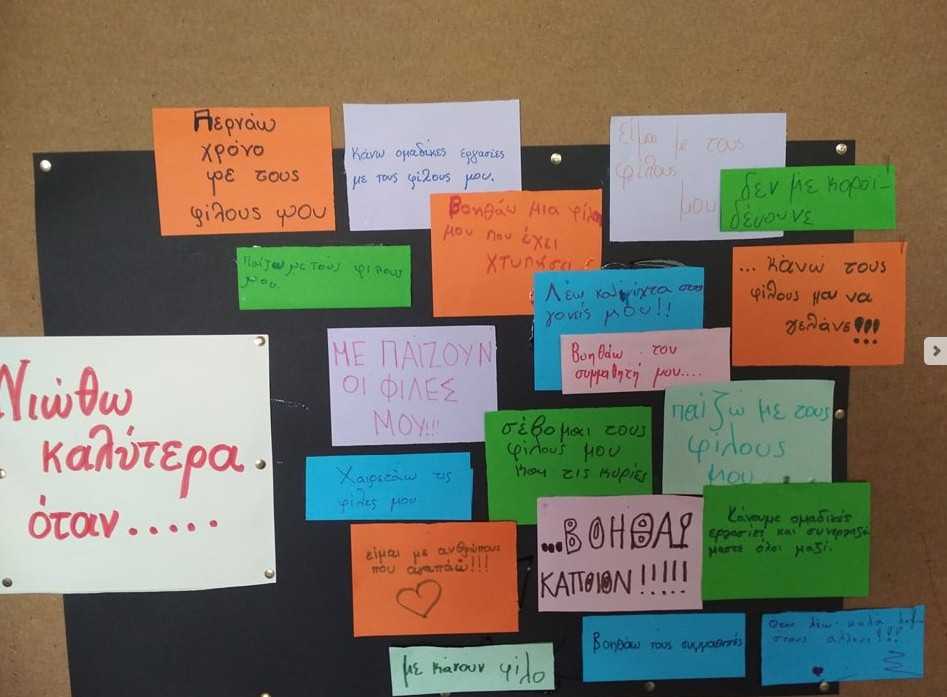 Νιώθω
καλύτερα
όταν.....
Περνάω
χρόνο
με τους
φίλους μου
Κάνω ομαδικές εργασίες
με τους φίλους μου.
Είμαι με τους
φίλους
μου
δεν με κοροϊ-
δέυουνε
Βοηθάω μια
μου που έχει
Παίζω με τους φίλους
μου
Λέω καληνίχτα στο
γονείς μου!!
... κάνω τους
φίλους μου να
γελάνε!!!
Βοηθάω του
συμμαθητή μου....
ΜΕ ΠΑΙΖΟΥΝ
ΟΙ ΦΙΛΕΣ
ΜΟΥ!!!
σέβομαι τους
φίλους μου
και τις κυρίες
παίζω με τους
φίλους
μου
Χαιρετάω τις
φίλες μου
είμαι με ανθρώπους
που αγαπάω!!!
...ΒΟΗΘΑΩ
ΚΑΠΟΙΟΝ!!!!!
Κάνουμε ομαδικές
εργασίες και συνεργαζό
μαστε όλοι μαζί.
με κάνουν φίλο
Βοηθάω τους συμμαθητές
Όταν λέω καλά
στους άλλους!!!